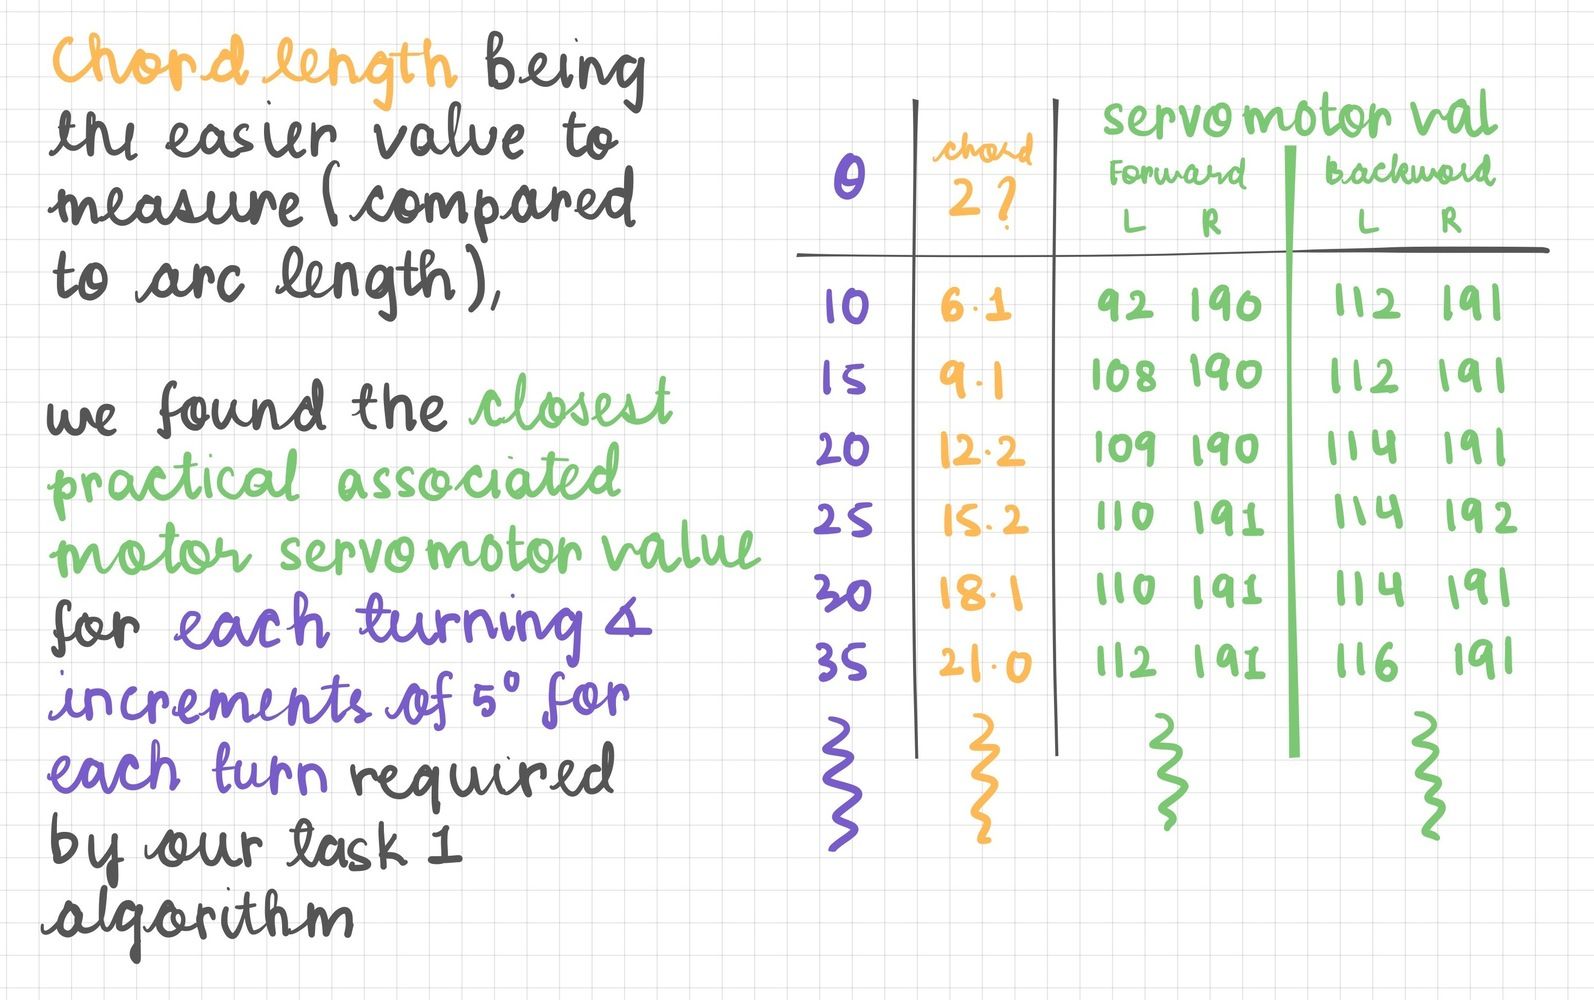 Chord length being
the easier value to
measure (compared
to arc length),
we found the closest
practical associated
motor servomotor value
for each turning ∡
increments of 5° for
each turn required
by our task 1
algorithm
servomotor val
θ chord Forward Backward
2? L R L R
10 6.1 92 190 112 191
15 9.1 108 190 112 191
20 12.2 109 190 114 191
25 15.2 110 191 114 192
30 18.1 110 191 114 191
35 21.0 112 191 116 191